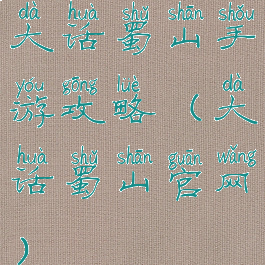 dà huà shǔ shān shǒu
大话蜀山手
yóu gōng lüè dà
游攻略（大
huà shǔ shān guān wǎng
话蜀山官网
）